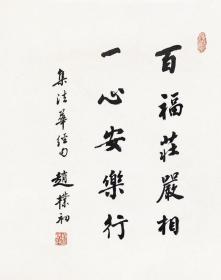 百福莊嚴相
一心安樂行
集法華經句 趙樸初